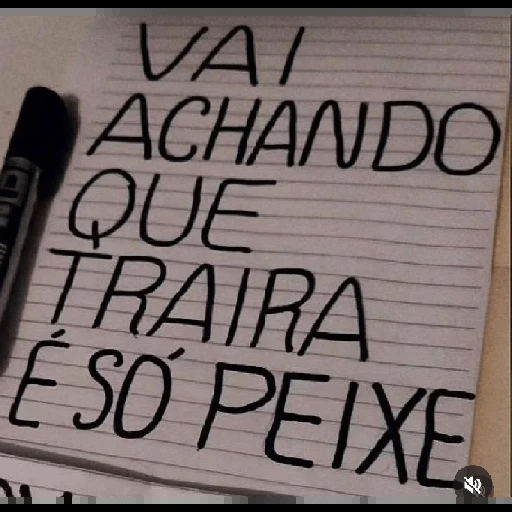 VAI
ACHANDO
QUE
TRAIRA
É SÓ PEIXE